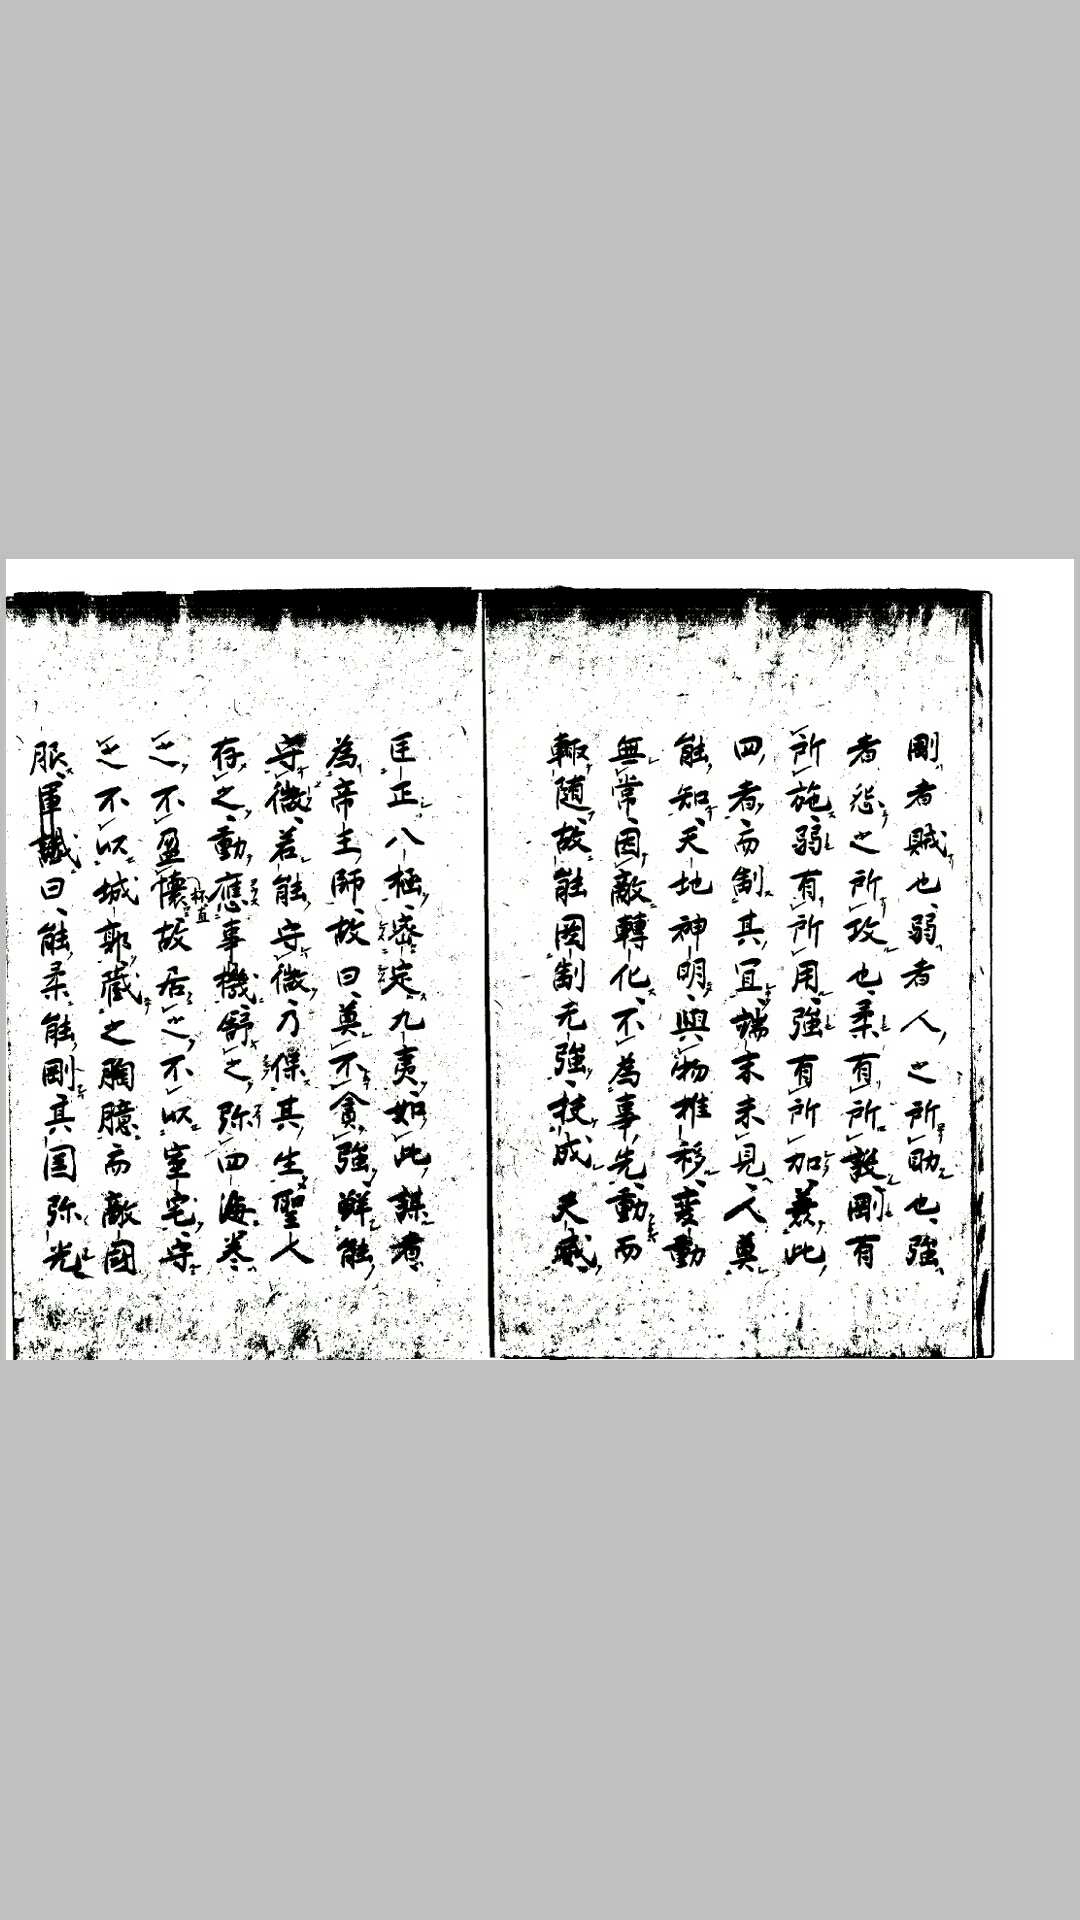 剛者賊也弱者人之所助也強
者怨之所攻也柔有所設剛有
所施弱有所用強有所加兼此
四者而制其冝端末未見人莫
能知天地神明與物推移変動
無常因敵轉化不為事先動而
輙随故能圖制无強扶成天威
匡正八極密定九夷如此謀者
為帝王師故曰莫不貪強鮮能
守微若能守微乃保其生聖人
存之動應事機舒之弥四海巻
之不盈懐故居之不以室宅守
杯直
之不以城郭蔵之胸臆而敵国
服軍讖曰能柔能剛其国弥光